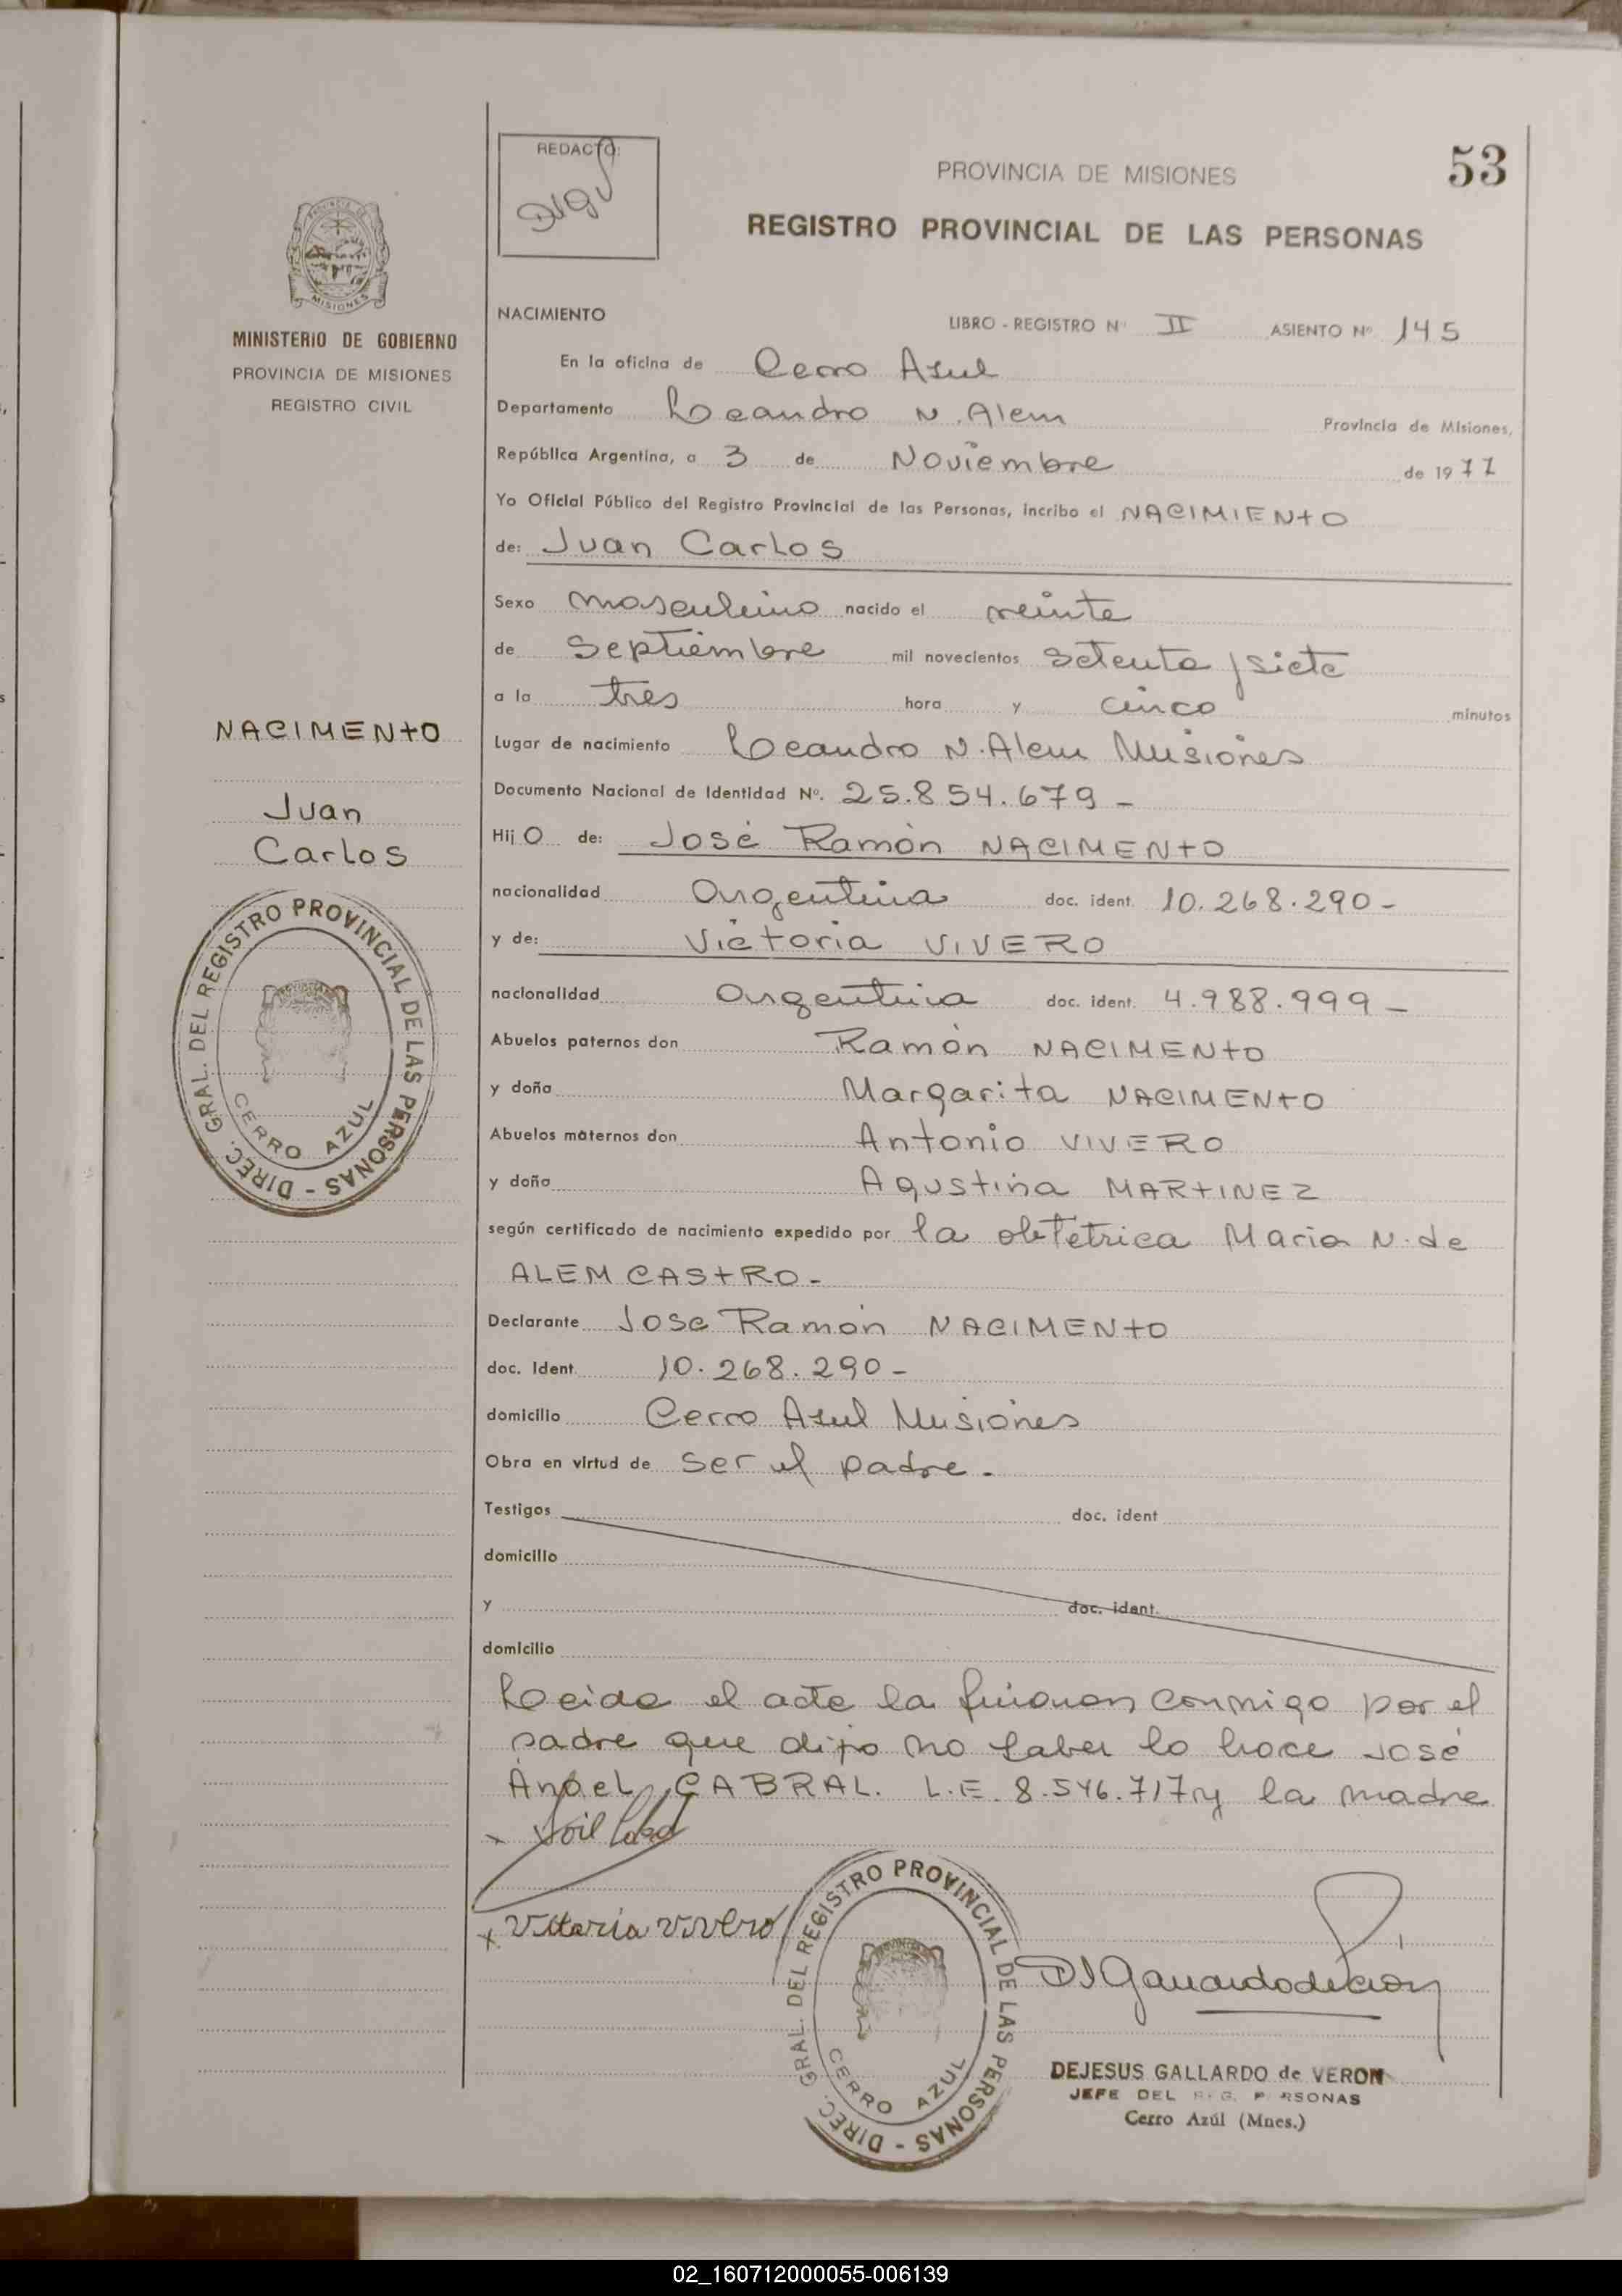 53
REDACTO:
PROVINCIA DE MISIONES
REGISTRO PROVINCIAL DE LAS PERSONAS
MISIONES
MINISTERIO DE GOBIERNO
PROVINCIA DE MISIONES
REGISTRO CIVIL
NACIMENTO
Juan
Carlos
DIREC. GRAL. DEL REGISTRO PROVINCIAL DE LAS PERSONAS -
CERRO AZUL
NACIMIENTO LIBRO - REGISTRO Nº II ASIENTO Nº 145
En la oficina de Cerro Azul
Departamento Leandro N. Alem Provincia de Misiones,
República Argentina, a 3 de Noviembre de 1977
Yo Oficial Público del Registro Provincial de las Personas, incribo el NACIMIENTO
de: Juan Carlos
Sexo masculino nacido el veinte
de Septiembre mil novecientos setenta y siete
a la tres hora y cinco minutos
Lugar de nacimiento Leandro N. Alem Misiones
Documento Nacional de Identidad Nº. 25.854.679 -
Hijo de: José Ramón NACIMENTO
nacionalidad Argentina doc. ident. 10.268.290 -
y de: Victoria VIVERO
nacionalidad Argentina doc. ident. 4.988.999 -
Abuelos paternos don Ramón NACIMENTO
y doña Margarita NACIMENTO
Abuelos maternos don Antonio VIVERO
y doña Agustina MARTINEZ
según certificado de nacimiento expedido por la obtetrica Maria N. de
ALEM CASTRO. -
Declarante Jose Ramón NACIMENTO
doc. ident. 10.268.290 -
domicilio Cerro Azul Misiones
Obra en virtud de ser el padre.
Testigos doc. ident
domicilio
y doc. ident.
domicilio
Leida el acta la firman conmigo por el
padre que dijo no saber lo hace José
Angel CABRAL. L.E. 8.546.717 y la madre
x Vitoria Vivero
DIREC. GRAL. DEL REGISTRO PROVINCIAL DE LAS PERSONAS -
CERRO AZUL
DEJESUS GALLARDO de VERON
JEFE DEL
Cerro Azúl (Mnes.)
02_160712000055-006139